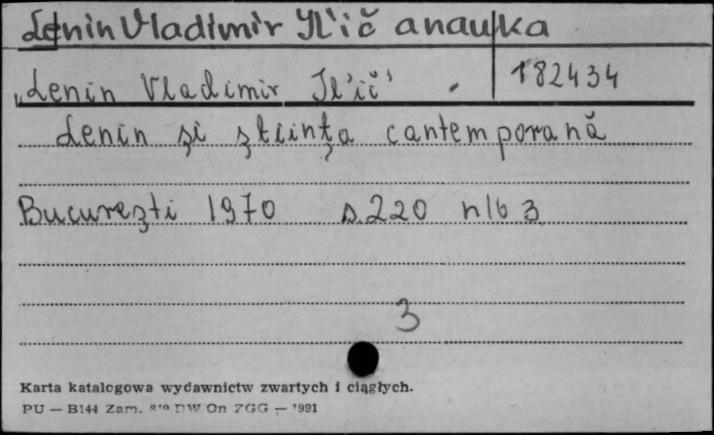 Lenin Vladimir Il'ič a nauka
„Lenin Vladimir Il'ič" . 182434
Lenin şi ştiinţa cantemporană
Bucureşti 1970 s. 220 nlb 3
3
Karta katalogowa wydawnictw zwartych i ciągłych.
PU — B144 Zam. DW On ZGG — 1991